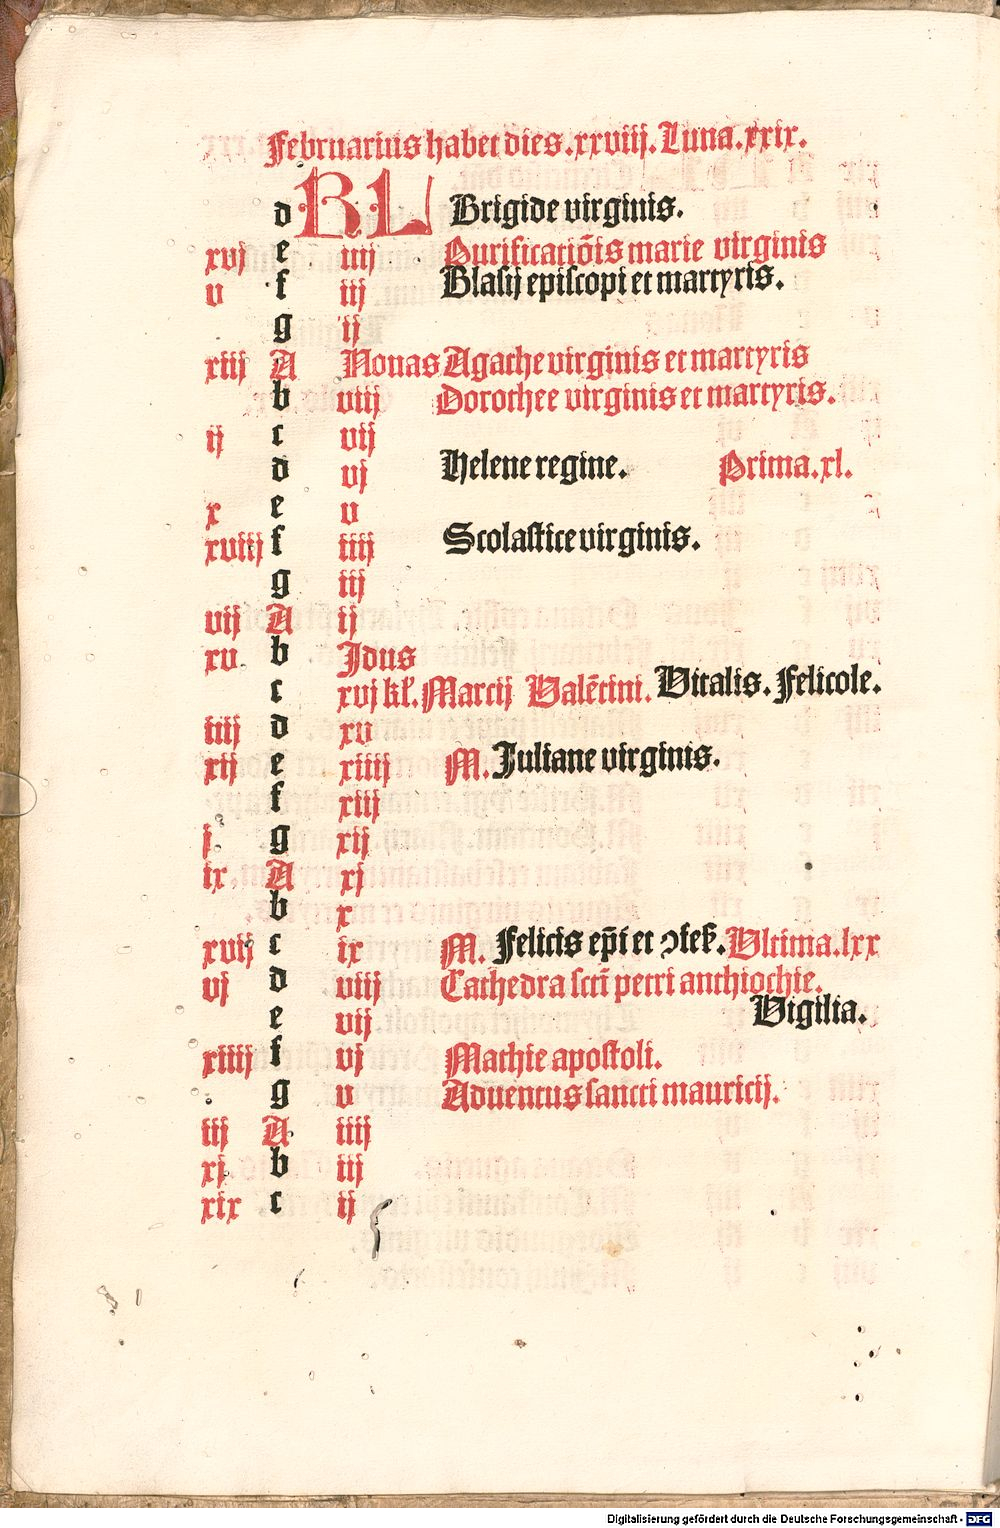 Februarius habet dies .xxviij. Luna .xxix.
d KL Brigide virginis.
xvj e iiij Purificatiōis marie virginis
v f iij Blasij episcopi et martyris.
g ij
xiij A Nonas Agathe virginis et martyris
b viij Dorothee virginis et martyris.
ij c vij
d vj Helene regine. Prima .xl.
x e v
xviij f iiij Scolastice virginis.
g iij
vij A ij
xv b Idus
c xvj kl̄. Marcij Valētini. Vitalis. Felicole.
iiij d xv
xij e xiiij M. Juliane virginis.
f xiij
j. g xij
ix A xj
b x
xvij c ix M. Felicis ep̄i et ↄfes̄. Vltima .lxx
vj d viij Cathedra sct̄i petri anthiochie.
e vij Vigilia.
xiiij f vj Mathie apostoli.
g v Aduentus sancti mauricij.
iij A iiij
xj. b iij
xix c ij
Digitalisierung gefördert durch die Deutsche Forschungsgemeinschaft - DFG